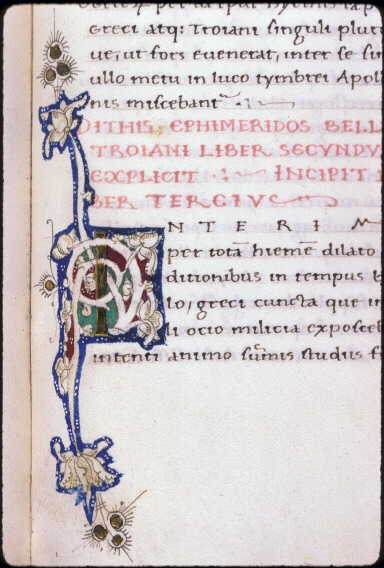 Greci atq: Troiani singuli plu
ue, ut fors euenerat, inter se si
ullo metu in luco tymbrei Apol
nis miscebant
DITHIS EPHIMERIDOS BELL
TROIANI LIBER SECVNDV
EXPLICIT INCIPIT
BER TERCIVS
I N T E R I M
per totā hiemē dilato
ditionibus in tempus b
lo, greci cuncta que in
li ocio milicia exposce
intenti animo summis studiis f